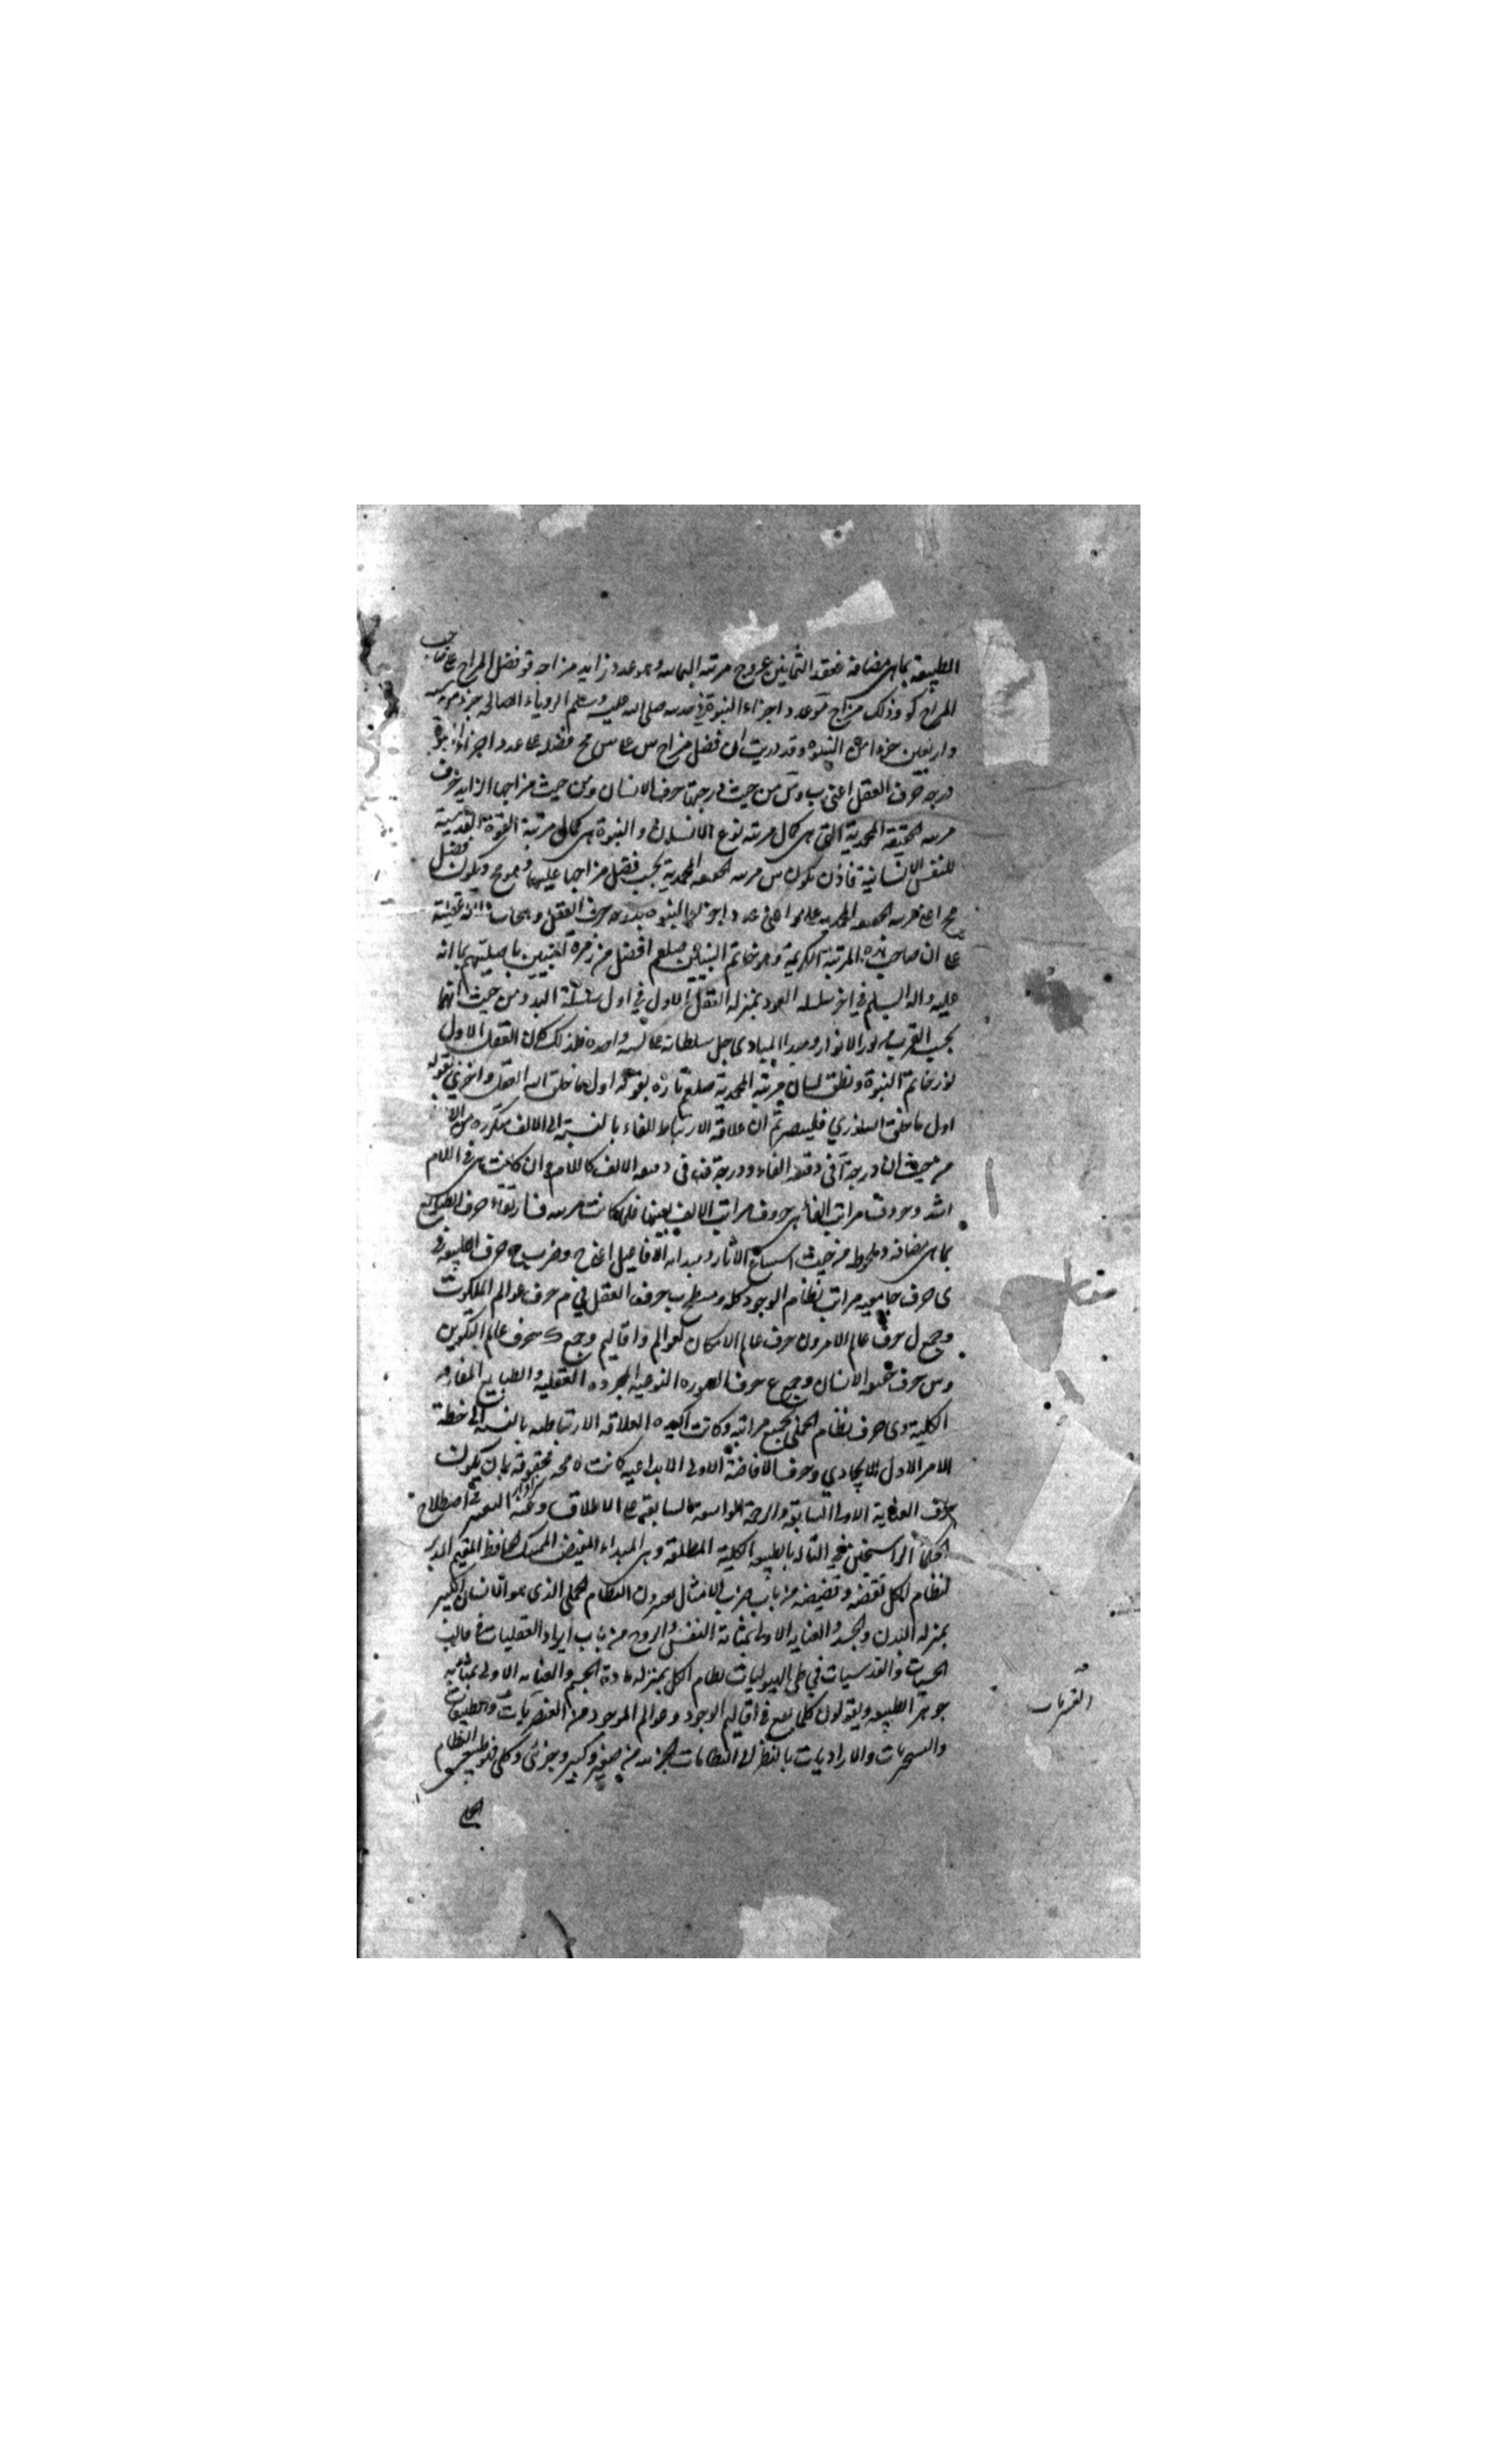 الطبيعة بما هى مضافة فعقد الثمانين عروج مرتبة وهو عدد زايد مزاجه فو فضل المزاج على
المزاج كو وذلك مزاج مو عدد اجزاء النبوة فى صلى الله عليه وسلم الروياء الصالحة جزء من ستة
واربعين جزءا من النبوة وقد دريت ان فضل مزاج س على س مح فضله على عدد اجزاء النبوة
درجة حرف العقل اعنى ب وس من حيث درجتها حرف الانسان ومن حيث مزاجها الزايد حرف
مرتبة الحقيقة المحمدية التى هى كمال مرتبة نوع الانسان والنبوة هى كمال مرتبة القوة القدسية
للنفس الانسانية فاذن تكون س مرتبة الحقيقة المحمدية بحسب فضل مزاجها عليها وهو مح ويكون فضل
مح اعنى مرتبة الحقيقة المحمدية على مو اعنى عدد اجزاء النبوة بدرجة حرف العقل
على ان صاحب هذه المرتبة الكريمة وهو خاتم النبيين صلعم افضل من زمرة النبيين باصليتهم بما انه
عليه واله السلم فى اخر سلسلة العود بمنزلة العقل الاول فى اول سلسلة البدو ومن حيث انهما
بحسب القرب من نور الانوار ومبدا المبادى جل سلطانه على نسبة واحدة فلذلك كان العقل الاول
نور خاتم النبوة ونطق لسان مرتبة المحمدية صلعم تارة بقوله اول ما خلق الله العقل واخرى بقوله
اول ما خلق الله نورى فليتبصر ثم ان علاقة الارتباط للفاء بالنسبة الى الالف متكررة من
من حيث ان درجة آ فى دفعة الفاء ودرجة ف فى دفعة الالف كاللام وان كانت هى فى اللام
اشد وحروف مراتب الفاء هى حروف مراتب الالف بعينها فلما كانت مرتبة ف ارتقاء حرف
بما هى مضافة وملحوظة من حيث الاثار ومبدائية الافاعيل اعنى ح وضرب ح حرف الطبيعة فى
ى حرف جامعية مراتب نظام الوجود كله ومسطح ب حرف العقل فى م حرف عوالم الملكوت
وجمع ل حرف عالم الامر ون حرف عالم الامكان لعوالم واقاليم وجمع ك حرف عالم التكوين
وس حرف الانسان وجمع ع حرف الصورة النوعية المجردة العقلية والطبايع المفارقة
الكلية وى حرف نظام الجملى بجميع مراتبه وكانت اكيدة العلاقة الارتباطية بالنسبة الى خطة
الامر الاول الايجادى وحرف الافاضة الاولى الابداعية كانت لا محة محقوقة بان تكون
حرف العناية الاولى السابقة والرحمة الواسعة السابقة على الاطلاق التعبير فى اصطلاح
الحكماء الراسخين فى التاله بالطبيعة الكلية المطلقة وهى المبداء المفيض الممسك الحافظ المقيم المدبر
لنظام الكل من باب ضرب الامثال النظام الجملى الذى هو الانسان الكبير
بمنزلة البدن والجسد والعناية الاولى بمثابة النفس والروح من باب ايراد العقليات فى قالب
الحسيات والقدسيات فى طى الهيولانيات نظام الكل بمنزلة مادة الجسم والعناية الاولى بمثابة
جوهر الطبيعة ويقولون كلما يقع فى اقاليم الوجود وعوالم الموجود من العنصريات والطبيعيات
والارادیات بالنظر الى النظامات الجزئية من صغير وكبير وجزئى وكلى فهو طبيعى النظام
الجملى
القسريات